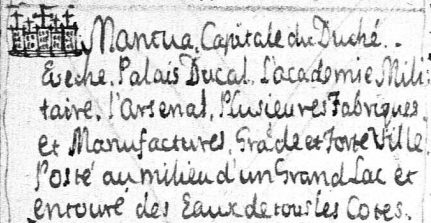 Mantua, Capitale du Duché.
Eveche, Palais Ducal, l'academie Mili:
taire, l'arsenal, Plusieures Fabriques
et Manufactures, Grāde et Forte Ville
Posté au milieu d'un Grand Lac et
entouré des Eaux de tous les Cotes.